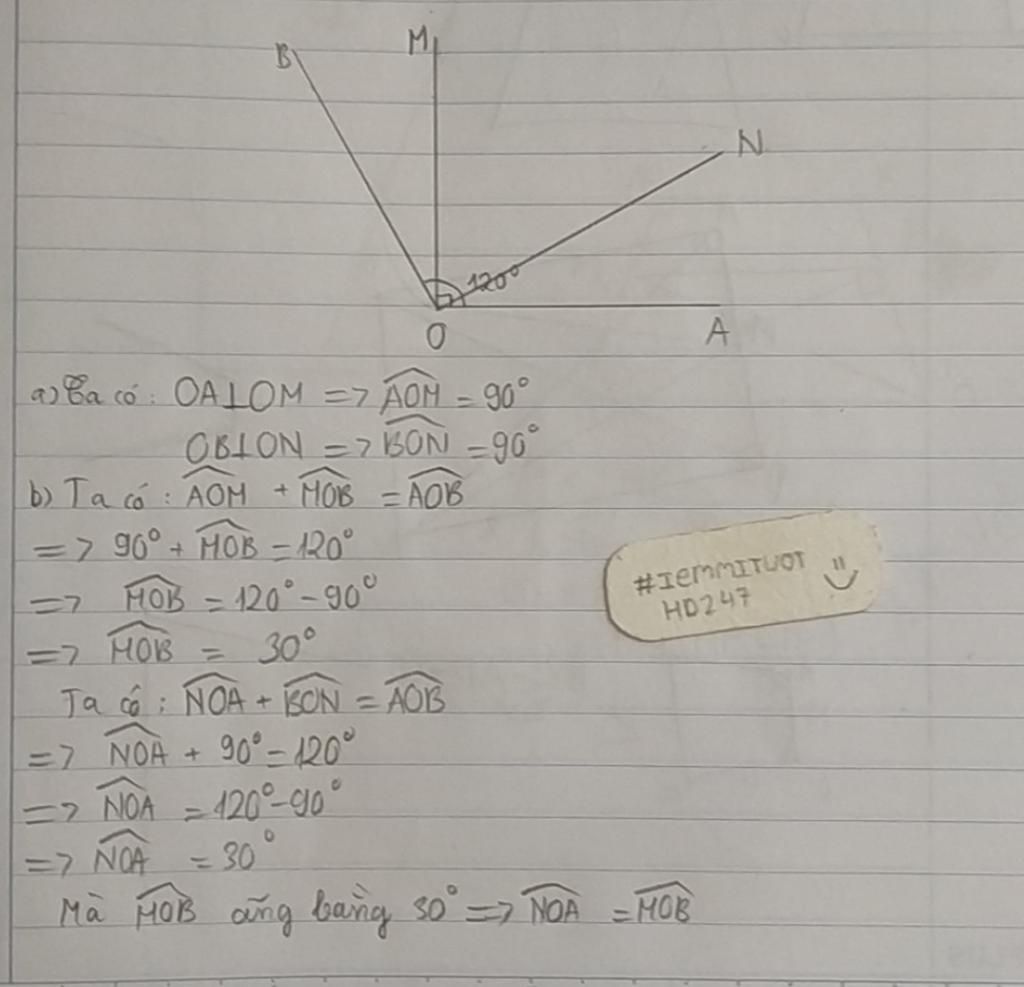 B
M
N
120°
O
A
a) Ta có: OA⊥OM => $\widehat{AOM}$ = 90°
OB⊥ON => $\widehat{BON}$ = 90°
b) Ta có: $\widehat{AOM}$ + $\widehat{MOB}$ = $\widehat{AOB}$
=> 90° + $\widehat{MOB}$ = 120°
=> $\widehat{MOB}$ = 120° - 90°
=> $\widehat{MOB}$ = 30°
#IEMMITUOT
HD247
Ta có: $\widehat{NOA}$ + $\widehat{BON}$ = $\widehat{AOB}$
=> $\widehat{NOA}$ + 90° = 120°
=> $\widehat{NOA}$ = 120° - 90°
=> $\widehat{NOA}$ = 30°
Mà $\widehat{MOB}$ cũng bằng 30° => $\widehat{NOA}$ = $\widehat{MOB}$